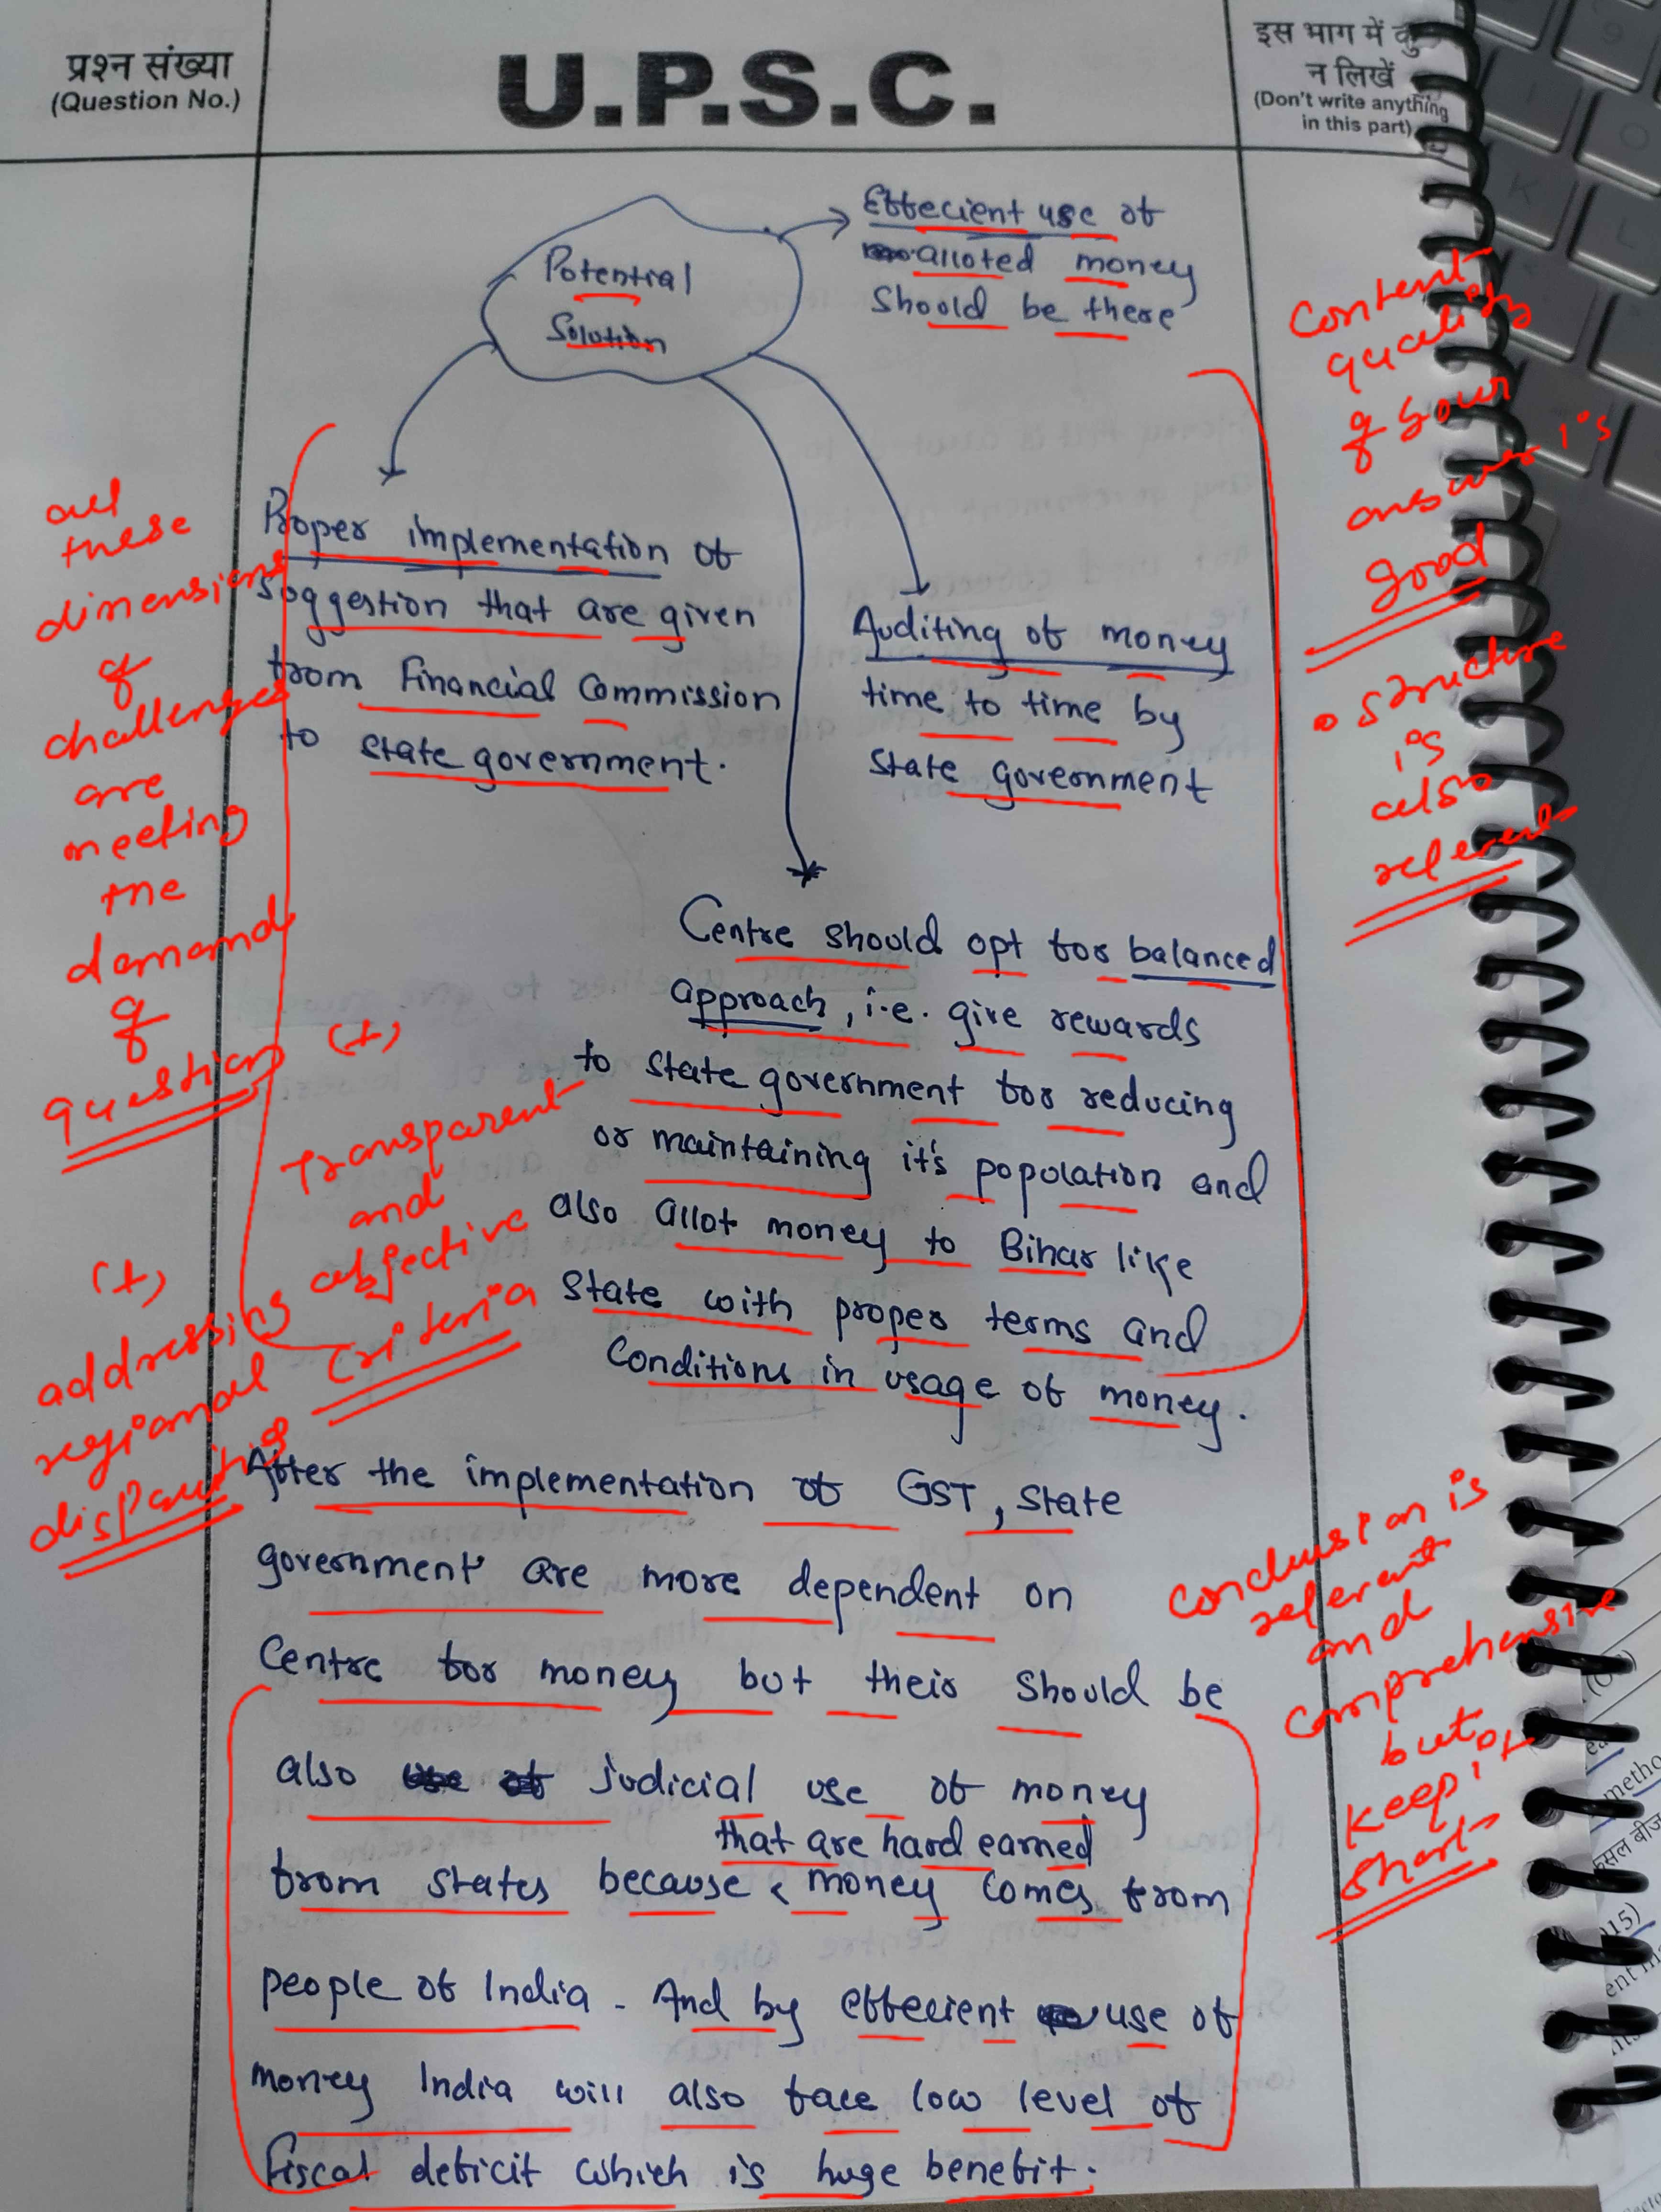 प्रश्न संख्या
(Question No.)
U.P.S.C.
इस भाग में कु
न लिखें
(Don't write anything
in this part)
Potential
Solution
Effecient use of
alloted money
should be there
Proper implementation of
suggestion that are given
from Financial Commission
to state government.
Auditing of money
time to time by
state government
Centre should opt for balanced
approach, i.e. give rewards
to state government for reducing
or maintaining it's population and
also allot money to Bihar like
state with proper terms and
Conditions in usage of money.
After the implementation of GST, state
government are more dependent on
Centre for money but their should be
also judicial use of money
that are hard earned
from states because money comes from
people of India. And by effecient use of
money India will also face low level of
fiscal deficit which is huge benefit.
all
these
dimensions
of
challenges
are
meeting
the
demand
of
question
(+)
Transparent
and
objective
criteria
(+)
addressing
regional
disparities
Content
quality
of your
answer is
good
structure
is
also
relevant
conclusion is
relevant
and
comprehensive
but
keep it
short
(2015)
फसल बीज